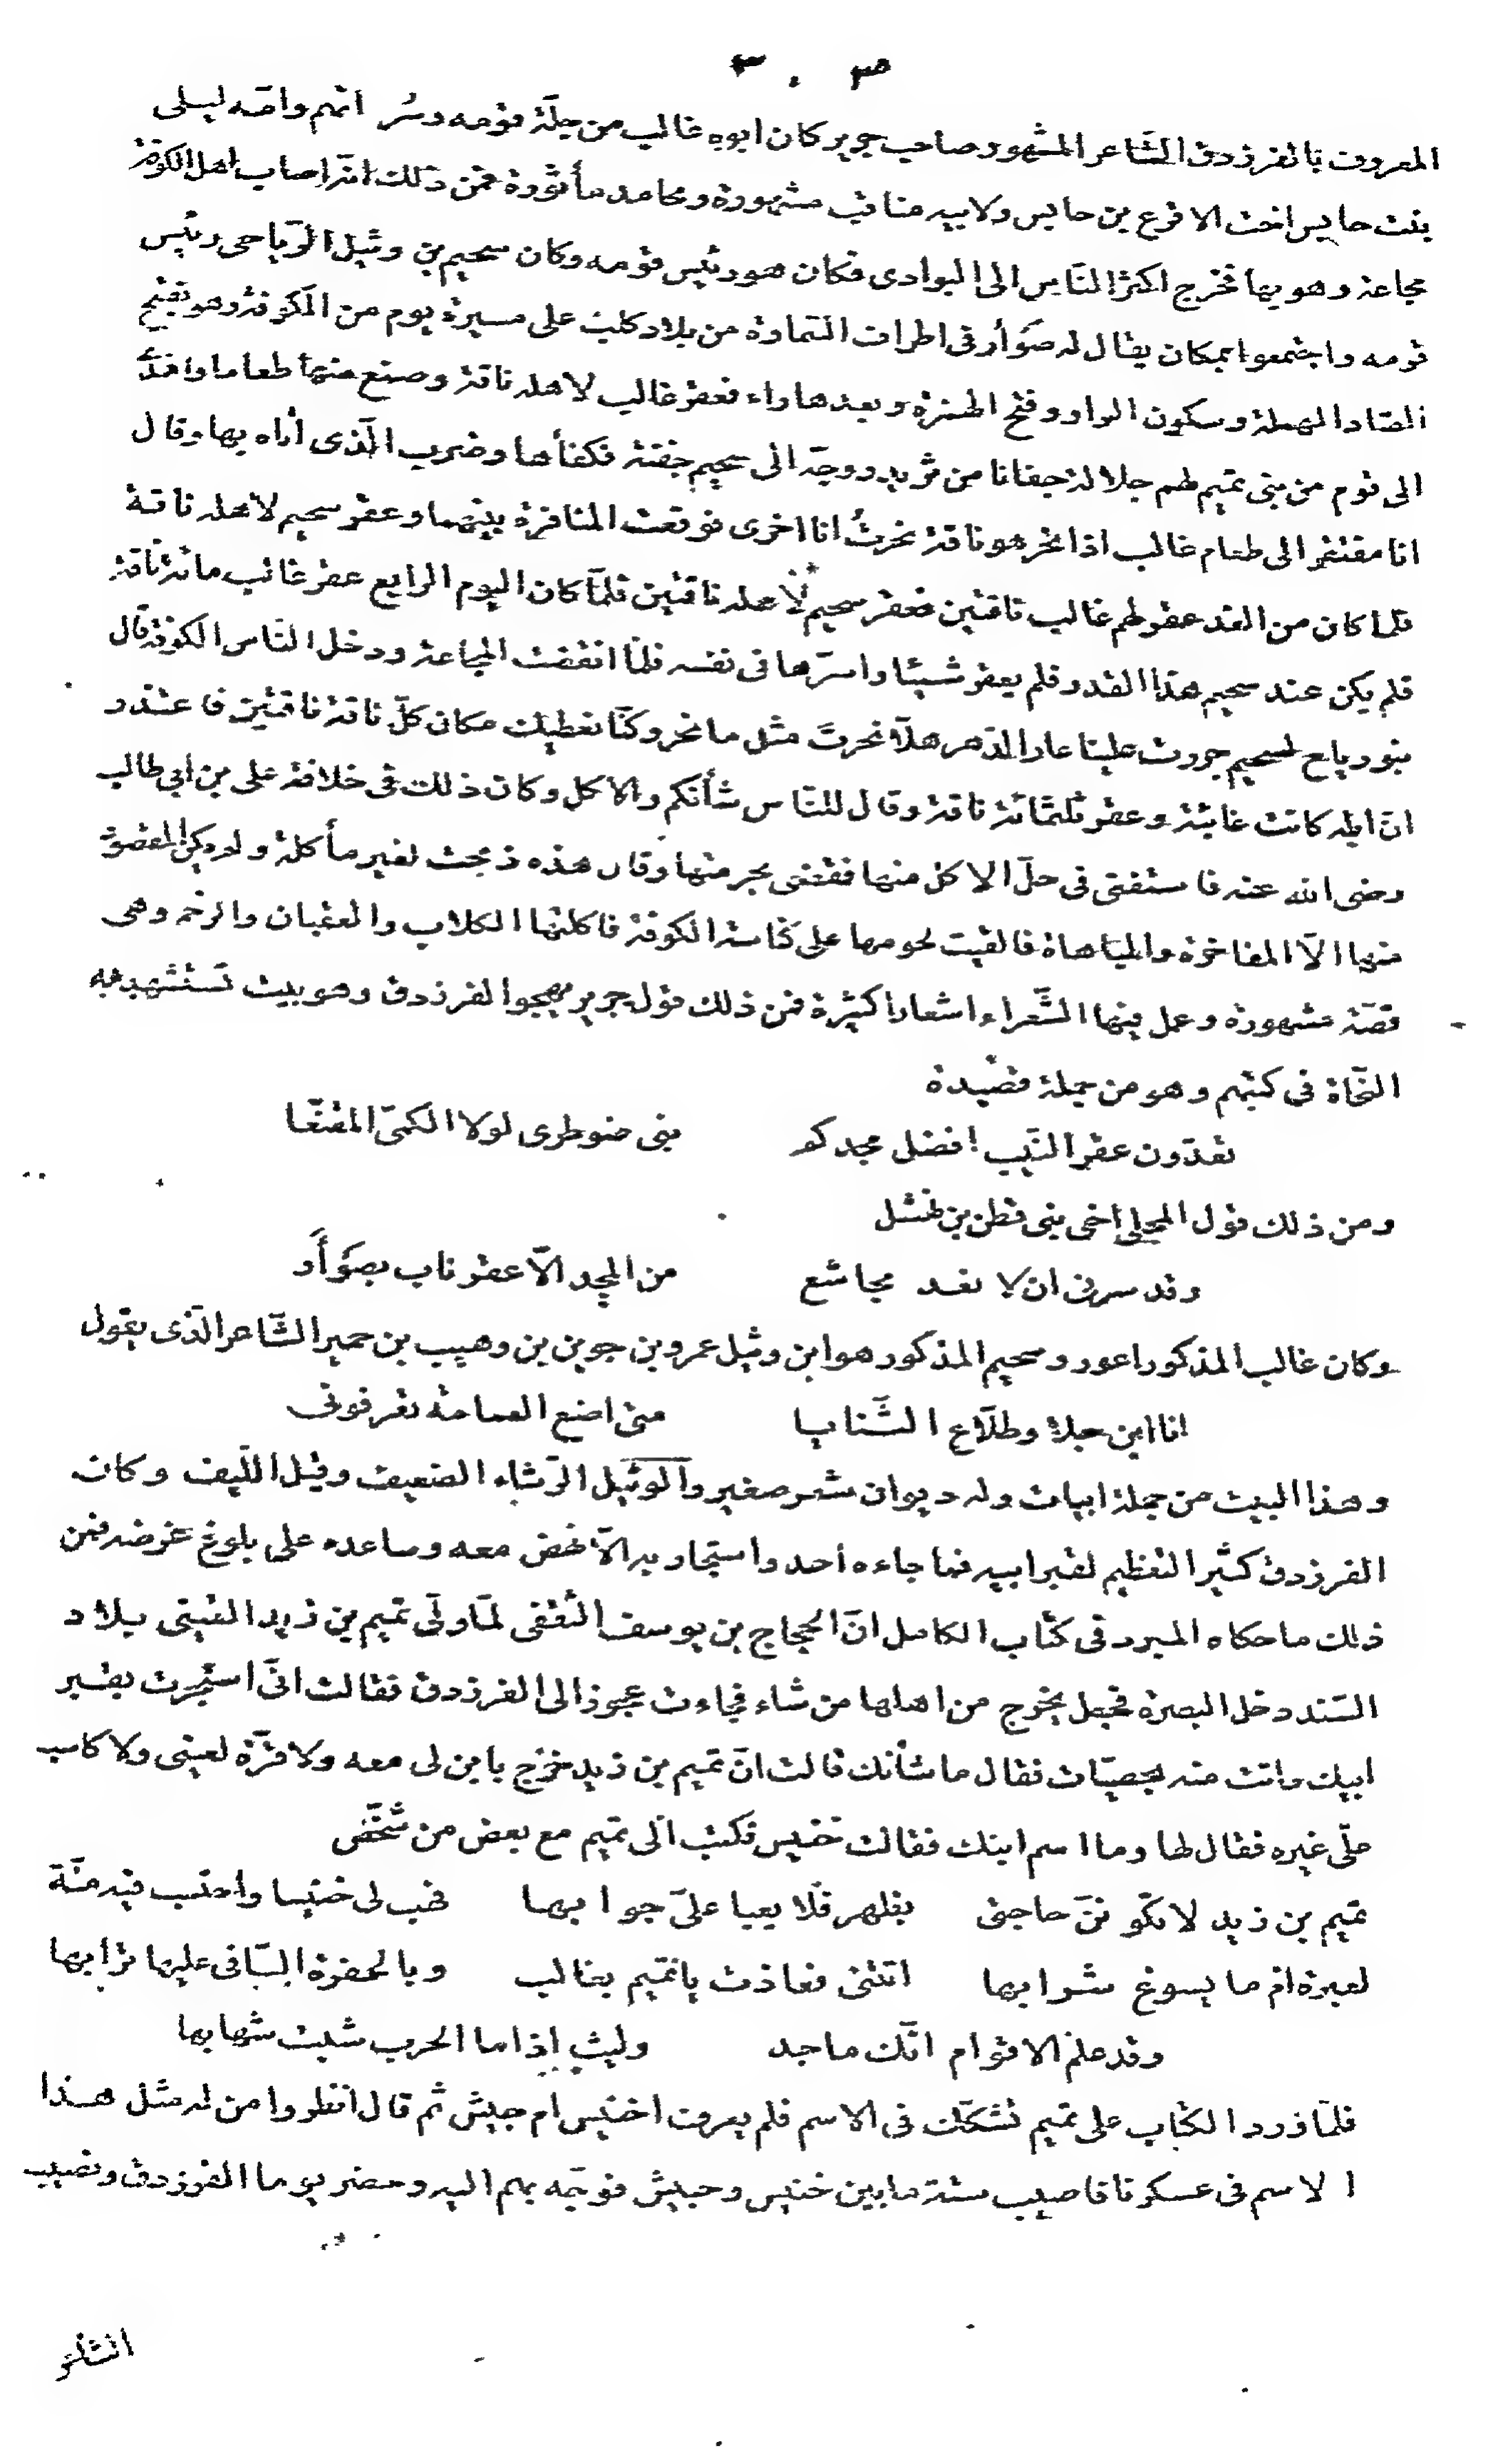 ٣٠٣
المعروف بالفرزدق الشّاعر المشهور صاحب جرير كان ابوه غالب من جلّة قومه وسُر اتهم وامّه ليلى
بنت حابس اخت الاقرع بن حابس ولابيه مناقب مشهورة ومحامد مأثورة فمن ذلك انّه اصاب اهل الكوفة
مجاعة وهو بها فخرج اكثر النّاس الى البوادى فكان هو رئيس قومه وكان سحيم بن وثيل الرّياحى رئيس
قومه واجتمعوا بمكان يقال له صَوأر فى اطراف السّماوة من بلاد كلب على مسيرة يوم من الكوفة وهو بفتح
الصّاد المهملة وسكون الواو وفتح الهمزة وبعدها راء فعقر غالب لاهله ناقة وصنع منها طعاما واهدى
الى قوم من بنى تميم لهم جلالة جفانا من ثريد ووجّه الى سحيم جفنة فكفأها وضرب الّذى أتاه بها وقال
انا مفتقر الى طعام غالب اذا نحر هو ناقة نحرتُ انا اخرى فوقعت المنافرة بينهما وعقر سحيم لاهله ناقة
فلما كان من الغد عقر لهم غالب ناقتين فعقر سحيم لأهله ناقتين فلمّا كان اليوم الرابع عقر غالب مائة ناقة
فلم يكن عند سحيم هذا القدر فلم يعقر شيئا واسرّها فى نفسه فلمّا انقضت المجاعة ودخل النّاس الكوفة قال
بنو رياح لسحيم جررت علينا عار الدّهر هلّا نحرتَ مثل ما نحر وكنّا نعطيك مكان كلّ ناقة ناقتين فاعتذر
انّ ابله كانت غائبة وعقر ثلثمائة ناقة وقال للنّاس شأنكم والاكل وكان ذلك فى خلافة على بن ابي طالب
رضى الله عنه فاستفتى فى حلّ الاكل منها فقضى بحرمتها وقال هذه ذبحت لغير مأكلة ولم يكن المقصود
منها الّا المفاخرة والمباهاة فالقيت لحومها على كناسة الكوفة فاكلتها الكلاب والعقبان والرخم وهى
قصّة مشهورة وعمل فيها الشّعراء اشعارا كثيرة فمن ذلك قول جرير يهجوا الفرزدق وهو بيت تستشهد به
النّحاة فى كتبهم وهو من جملة قصيدة
تعدّون عقر النّيب افضل مجدكم بنى ضوطرى لولا الكمىّ المقنّعا
ومن ذلك قول المحلى أخى بنى قطن بن نهشل
وقد سرنى ان لا تعد مجاشع من المجد الّا عقر ناب بصَوأر
وكان غالب المذكور اعور وسحيم المذكور هو ابن وثيل عمرو بن جوين بن وهيب بن حمير الشّاعر الّذى يقول
انا ابن جلا وطلّاع الثّنايا متى اضع العمامة تعرفونى
وهذا البيت من جملة ابيات وله ديوان شعر صغير والوثيل الرّشاء الضعيف وقيل اللّيف وكان
الفرزدق كثير التعظيم لقبر ابيه فما جاءه أحد واستجار به الّا نهض معه وساعده على بلوغ غرضه فمن
ذلك ما حكاه المبرد فى كتاب الكامل انّ الحجاج بن يوسف الثقفى لمّا ولّى تميم بن زيد القينى بلاد
السّند دخل البصرة فجعل يخرج من اهلها من شاء فجاءت عجوز الى الفرزدق فقالت انّى استجرت بقبر
ابيك واتت منه بحصيّات فقال ما شأنك قالت انّ تميم بن زيد خرج بابن لى معه ولا قرّة لعينى ولا كاسب
علّى غيره فقال لها وما اسم ابنك فقالت خنيس فكتب الى تميم مع بعض من شخّص
تميم بن زيد لا تكوننّ حاجتى بظهر فلا يعيا علىّ جوابها فهب لى خنيسا واحتسب فيه منّة
لعبرة ام ما يسوغ شرابها اتتنى فعاذت يا تميم بغالب وبالحفرة السّافى عليها ترابها
وقد علم الاقوام انّك ماجد وليث إذا ما الحرب شبت شهابها
فلمّا ورد الكتاب على تميم تشكّك فى الاسم فلم يعرف اخنيس ام حبيش ثم قال انظروا من له مثل هذا
الاسم فى عسكرنا فاصيب ستة ما بين خنيس وحبيش فوجّه بهم اليه وحضر يوما الفرزدق ونصيب